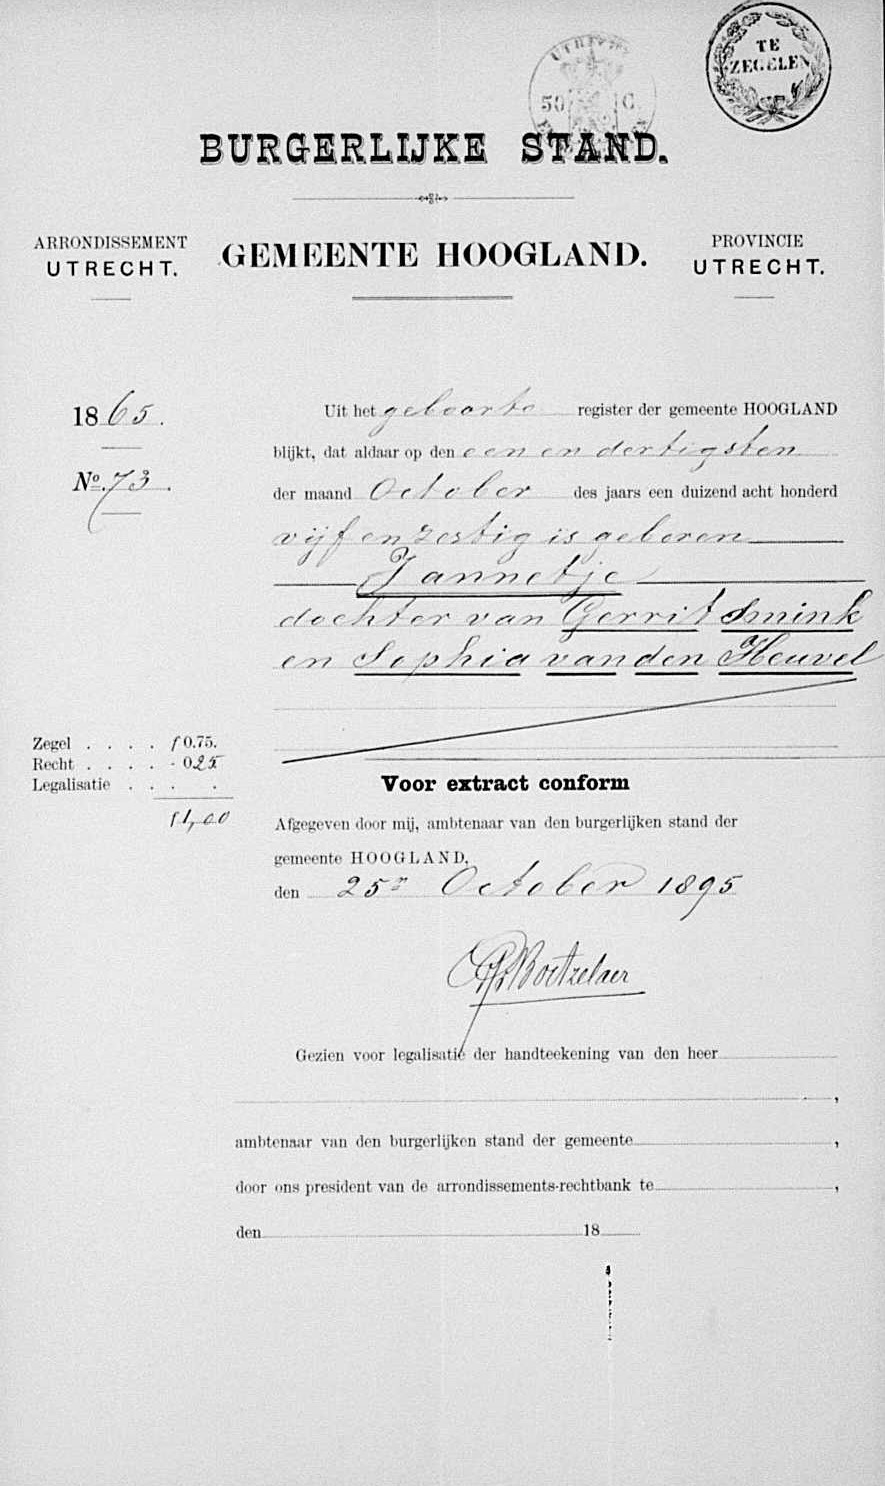 UTRECHT
50 C.
TE
ZEGELEN
BURGERLIJKE STAND.
ARRONDISSEMENT
UTRECHT.
GEMEENTE HOOGLAND.
PROVINCIE
UTRECHT.
1865.
No. 73.
Uit het geboorte register der gemeente HOOGLAND
blijkt, dat aldaar op den een en dertigsten
der maand October des jaars een duizend acht honderd
vijf en zestig is geboren
Jannetje
dochter van Gerrit Smink
en Sophia van den Heuvel
Zegel . . . . f 0.75.
Recht . . . . - 025
Legalisatie . . . .
f 1,00
Voor extract conform
Afgegeven door mij, ambtenaar van den burgerlijken stand der
gemeente HOOGLAND,
den 25n October 1895
Boetzelaer
Gezien voor legalisatie der handteekening van den heer
,
ambtenaar van den burgerlijken stand der gemeente ,
door ons president van de arrondissements-rechtbank te ,
den 18